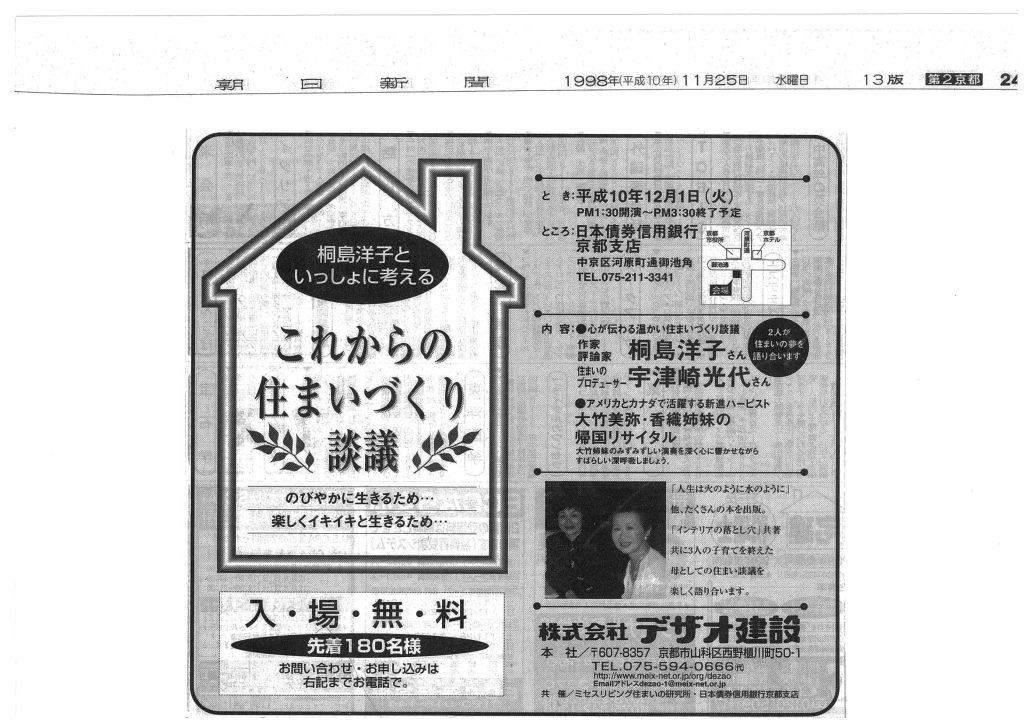 朝日新聞 1998年(平成10年)11月25日 水曜日 13版 第2京都 24
桐島洋子と
いっしょに考える
これからの
住まいづくり
談議
のびやかに生きるため…
楽しくイキイキと生きるため…
入・場・無・料
先着180名様
お問い合わせ・お申し込みは
右記までお電話で。
とき:平成10年12月1日(火)
PM1:30開演〜PM3:30終了予定
ところ:日本債券信用銀行
京都支店
中京区河原町通御池角
TEL.075-211-3341
京都
市役所
河原町通
京都
ホテル
御池通
会場
内容:●心が伝わる温かい住まいづくり談議
作家
評論家 桐島洋子さん
住まいの
プロデューサー 宇津崎光代さん
2人が
住まいの夢を
語り合います
●アメリカとカナダで活躍する新進ハーピスト
大竹美弥・香織姉妹の
帰国リサイタル
大竹姉妹のみずみずしい演奏を深く心に響かせながら
すばらしい深呼吸しましょう。
「人生は火のように水のように」
他、たくさんの本を出版。
「インテリアの落とし穴」共著
共に3人の子育てを終えた
母としての住まい談議を
楽しく語り合います。
株式会社 デザオ建設
本社/〒607-8357 京都市山科区西野櫃川町50-1
TEL.075-594-0666㈹
http://www.meix-net.or.jp/org/dezao
Emailアドレスdezao-1@meix-net.or.jp
共催/ミセスリビング住まいの研究所・日本債券信用銀行京都支店